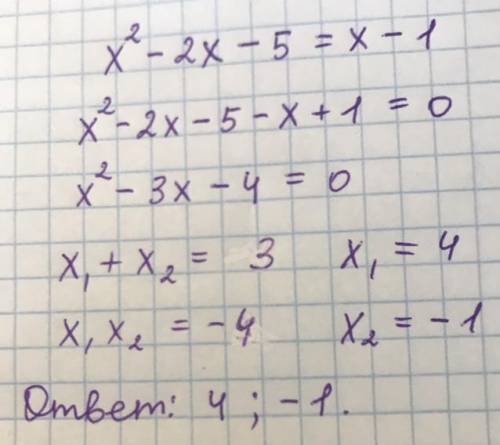 x² - 2x - 5 = x - 1
x² - 2x - 5 - x + 1 = 0
x² - 3x - 4 = 0
x₁ + x₂ = 3 x₁ = 4
x₁ x₂ = -4 x₂ = -1
Ответ: 4 ; -1.